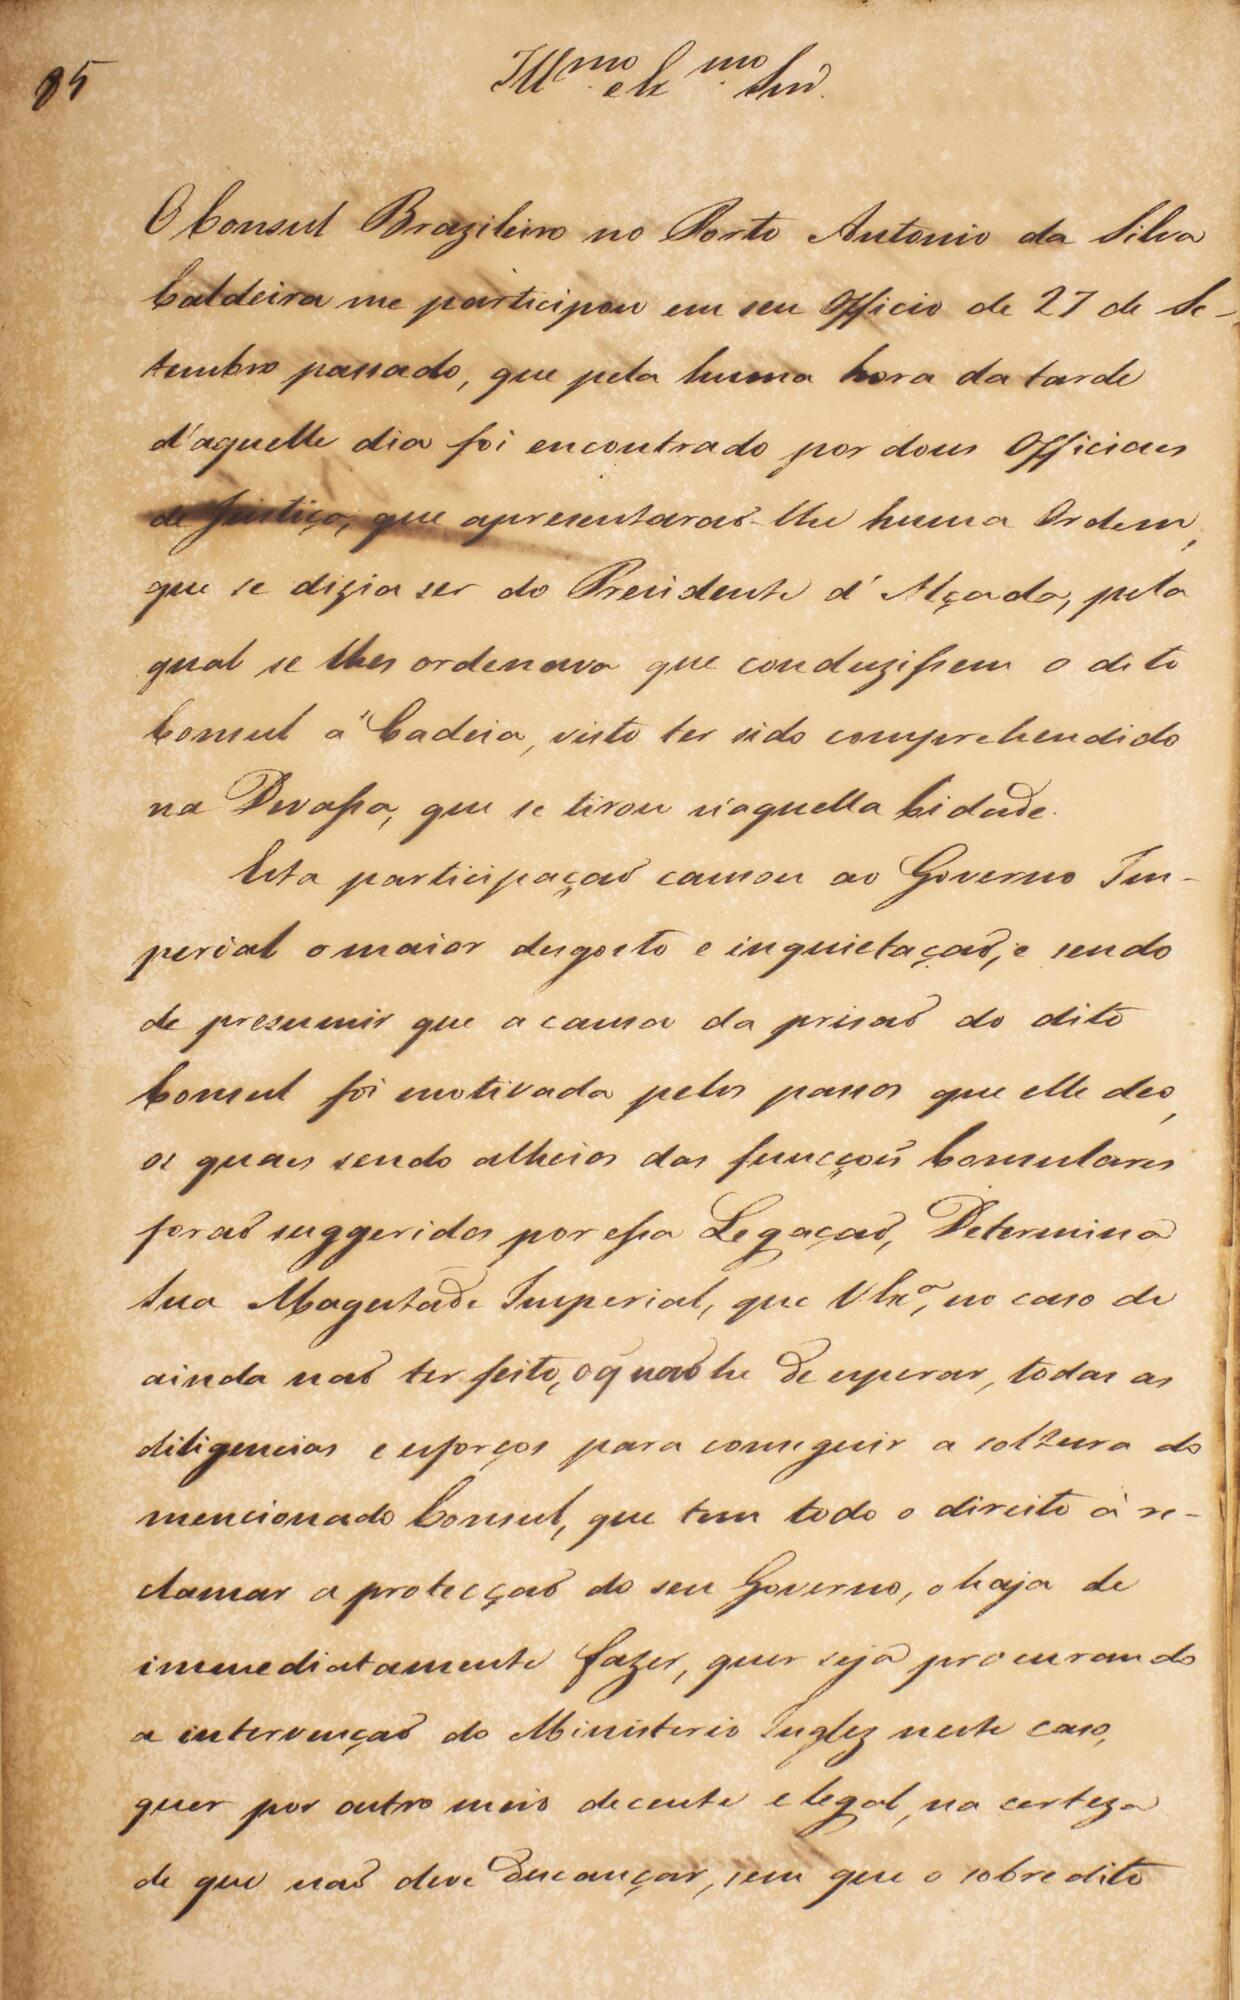 85
Ill.mo e Ex.mo Snr.
O Consul Brazileiro no Porto Antonio da Silva
Caldeira me participou em seu Officio de 27 de Se-
tembro passado, que pela huma hora da tarde
d'aquelle dia foi encontrado por dous Officiaes
de Justiça, que apresentaraõ-lhe huma Ordem,
que se dizia ser do Presidente d'Alçada, pela
qual se lhes ordenava que conduzissem o dito
Consul á Cadeia, visto ter sido comprehendido
na Devassa, que se tirou n'aquella Cidade.
Esta participaçaõ causou ao Governo Im-
perial o maior desgosto e inquietaçaõ, e sendo
de presumir que a causa da prisaõ do dito
Consul foi motivada pelos passos que elle deo,
os quaes sendo alheios das funcçoẽs Consulares
foraõ suggeridos por essa Legaçaõ, Determina
Sua Magestade Imperial, que V Exa, no caso de
ainda naõ ter feito, o q̃ naõ he de esperar, todas as
diligencias e esforços para conseguir a soltura do
mencionado Consul, que tem todo o direito à re-
clamar a protecçaõ do seu Governo, o haja de
immediatamente fazer, quer seja procurando
a intervençaõ do Ministerio Inglez neste caso,
quer por outro meio decente e legal, na certeza
de que naõ deve descançar, sem que o sobredito